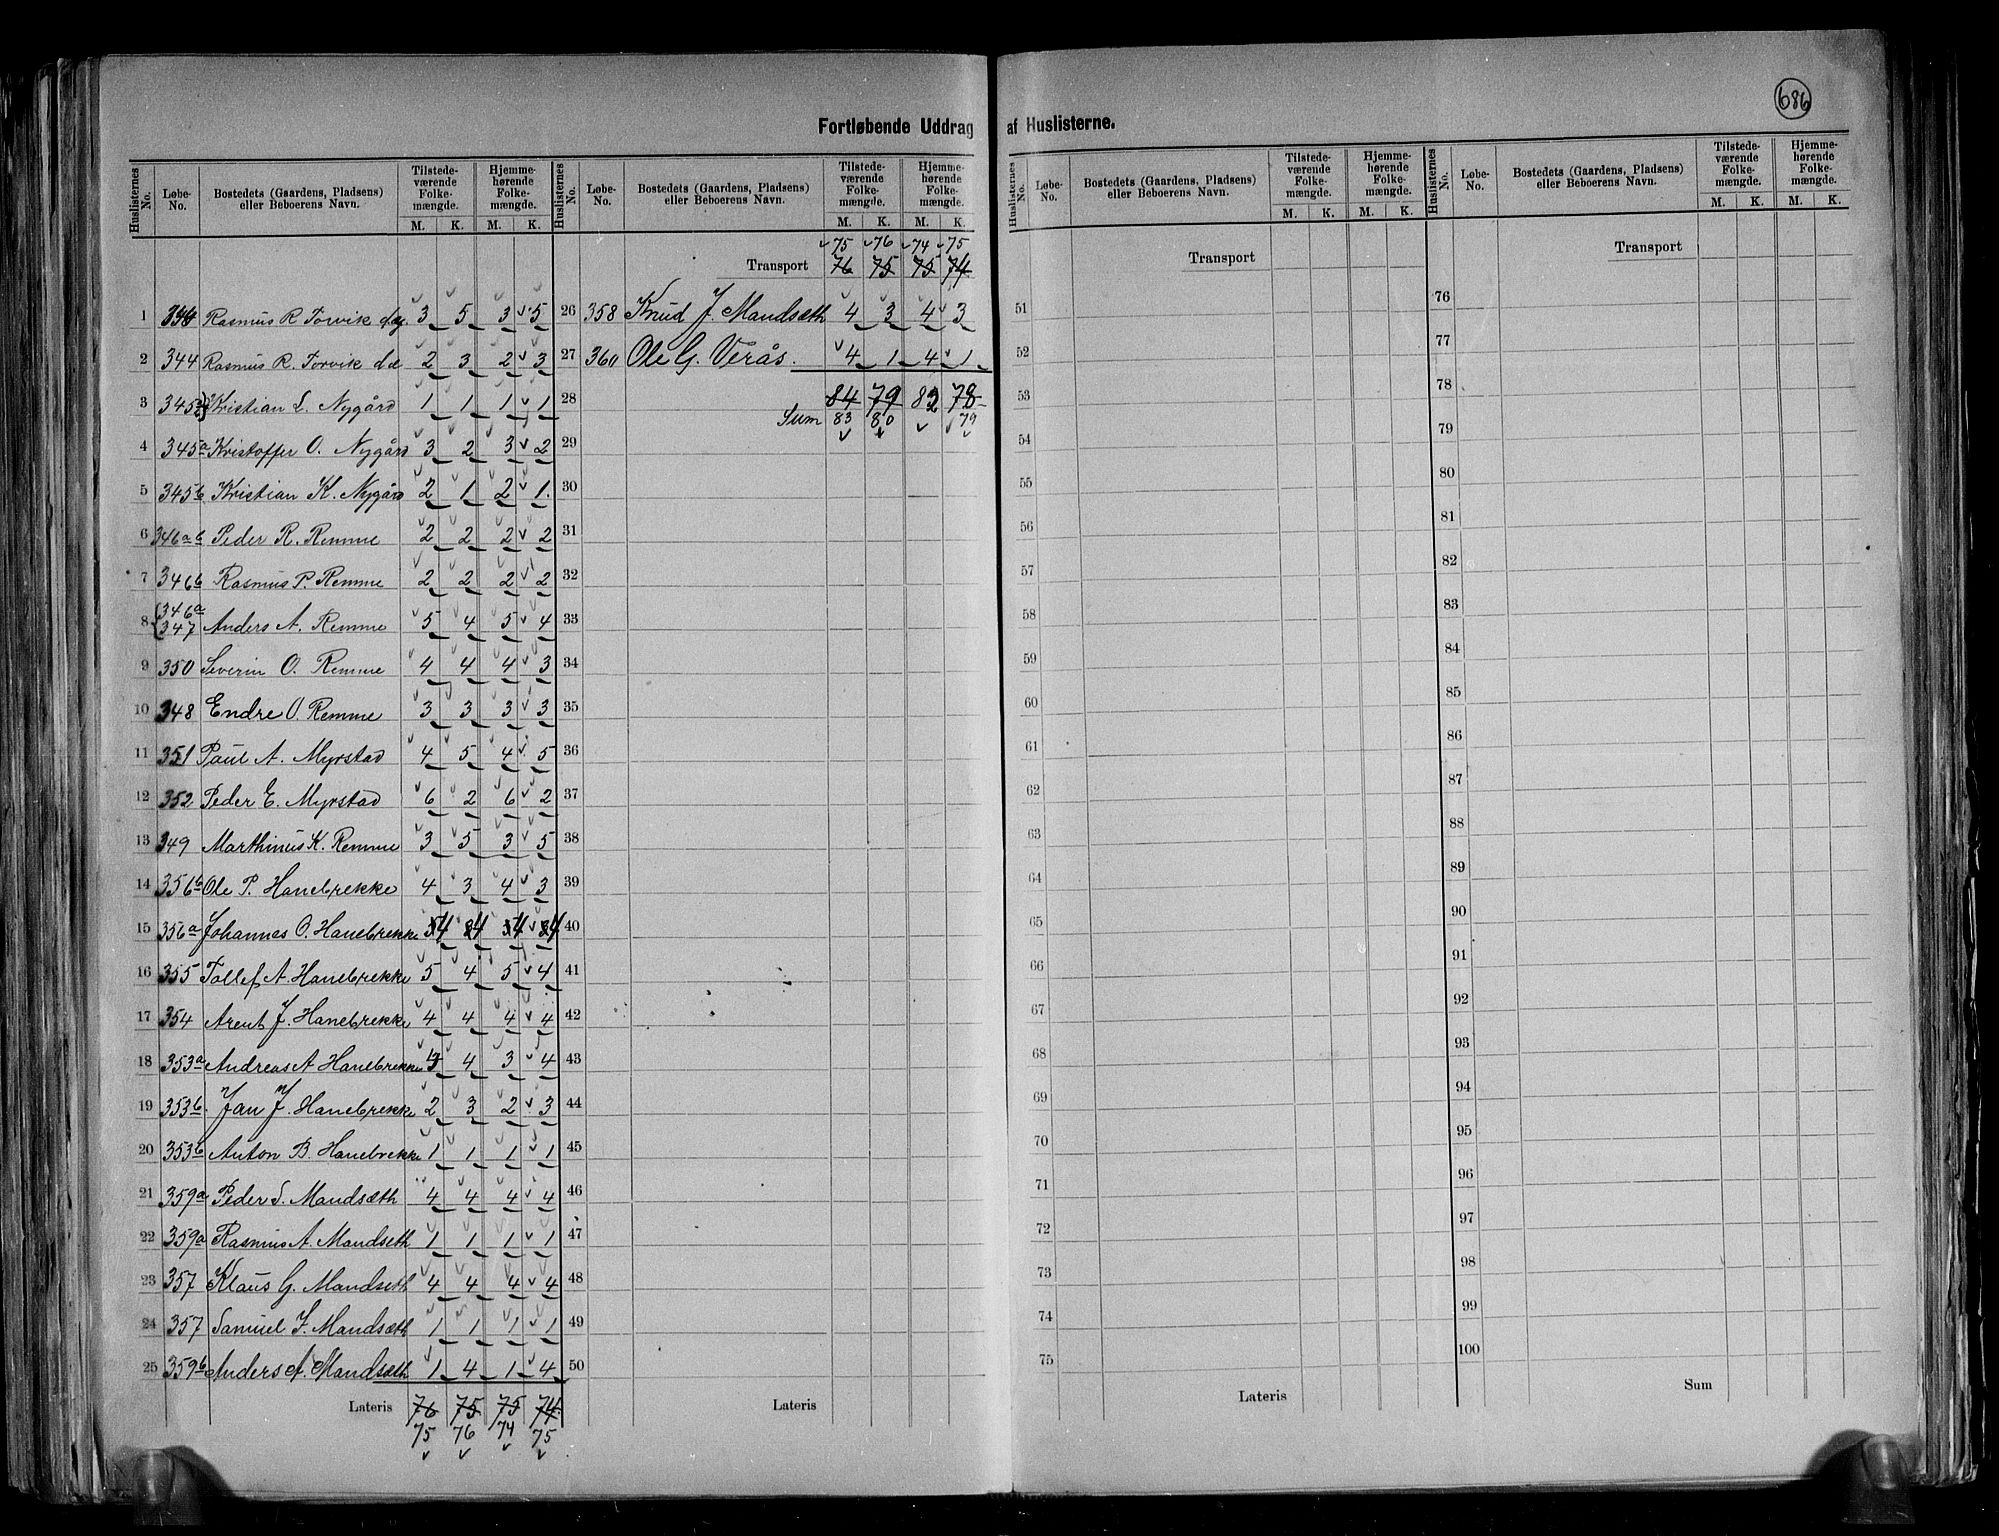 686
Fortløbende Uddrag af Huslisterne.
Huslisternes No. Løbe-No. Bostedets (Gaardens, Pladsens) eller Beboerens Navn. Tilstede-værende Folke-mængde. Hjemme-hørende Folke-mængde.
M. K. M. K.
1 Rasmus R Torvik 3 5 3 5
2 344 Rasmus R. Torvik 2 3 2 3
3 345 Kristian L. Nygård 1 1 1 1
4 345a Kristoffer O. Nygård 3 2 3 2
5 345b Kristian K. Nygård 2 1 2 1
6 346a Peder R. Remme 2 2 2 2
7 346b Rasmus P. Remme 2 2 2 2
8 346a 347 Anders A. Remme 5 4 5 4
9 350 Severin O. Remme 4 4 4 3
10 348 Endre O. Remme 3 3 3 3
11 351 Paul A. Myrstad 4 5 4 5
12 352 Peder E. Myrstad 6 2 6 2
13 349 Marthinus K. Remme 3 5 3 5
14 356b Ole P. Hanebrekke 4 3 4 3
15 356a Johannes O. Hanebrekke 4 4 4 4
16 355 Tollef A. Hanebrekke 5 4 5 4
17 354 Arent J. Hanebrekke 4 4 4 4
18 353a Andreas A Hanebrekke 3 4 3 4
19 353b Jan J. Hanebrekke 2 3 2 3
20 353b Anton B. Hanebrekke 1 1 1 1
21 359a Peder S. Mandsæth 4 4 4 4
22 359a Rasmus A. Mandseth 1 1 1 1
23 357 Klaus G. Mandseth 4 4 4 4
24 357 Samuel J. Mandsæth 1 1 1 1
25 359b Anders A. Mandsæth 1 4 1 4
Lateris 76 75 75 74
75 76 74 75
Huslisternes No. Løbe-No. Bostedets (Gaardens, Pladsens) eller Beboerens Navn. Tilstede-værende Folke-mængde. Hjemme-hørende Folke-mængde.
M. K. M. K.
75 76 74 75
Transport 76 75 75 74
26 358 Knud J. Mandsæth 4 3 4 3
27 360 Ole G. Verås. 4 1 4 1
28 84 79 82 78
Sum 83 80 79
29
30
31
32
33
34
35
36
37
38
39
40
41
42
43
44
45
46
47
48
49
50
Lateris
Huslisternes No. Løbe-No. Bostedets (Gaardens, Pladsens) eller Beboerens Navn. Tilstede-værende Folke-mængde. Hjemme-hørende Folke-mængde.
M. K. M. K.
Transport
51
52
53
54
55
56
57
58
59
60
61
62
63
64
65
66
67
68
69
70
71
72
73
74
75
Lateris
Huslisternes No. Løbe-No. Bostedets (Gaardens, Pladsens) eller Beboerens Navn. Tilstede-værende Folke-mængde. Hjemme-hørende Folke-mængde.
M. K. M. K.
Transport
76
77
78
79
80
81
82
83
84
85
86
87
88
89
90
91
92
93
94
95
96
97
98
99
100
Sum